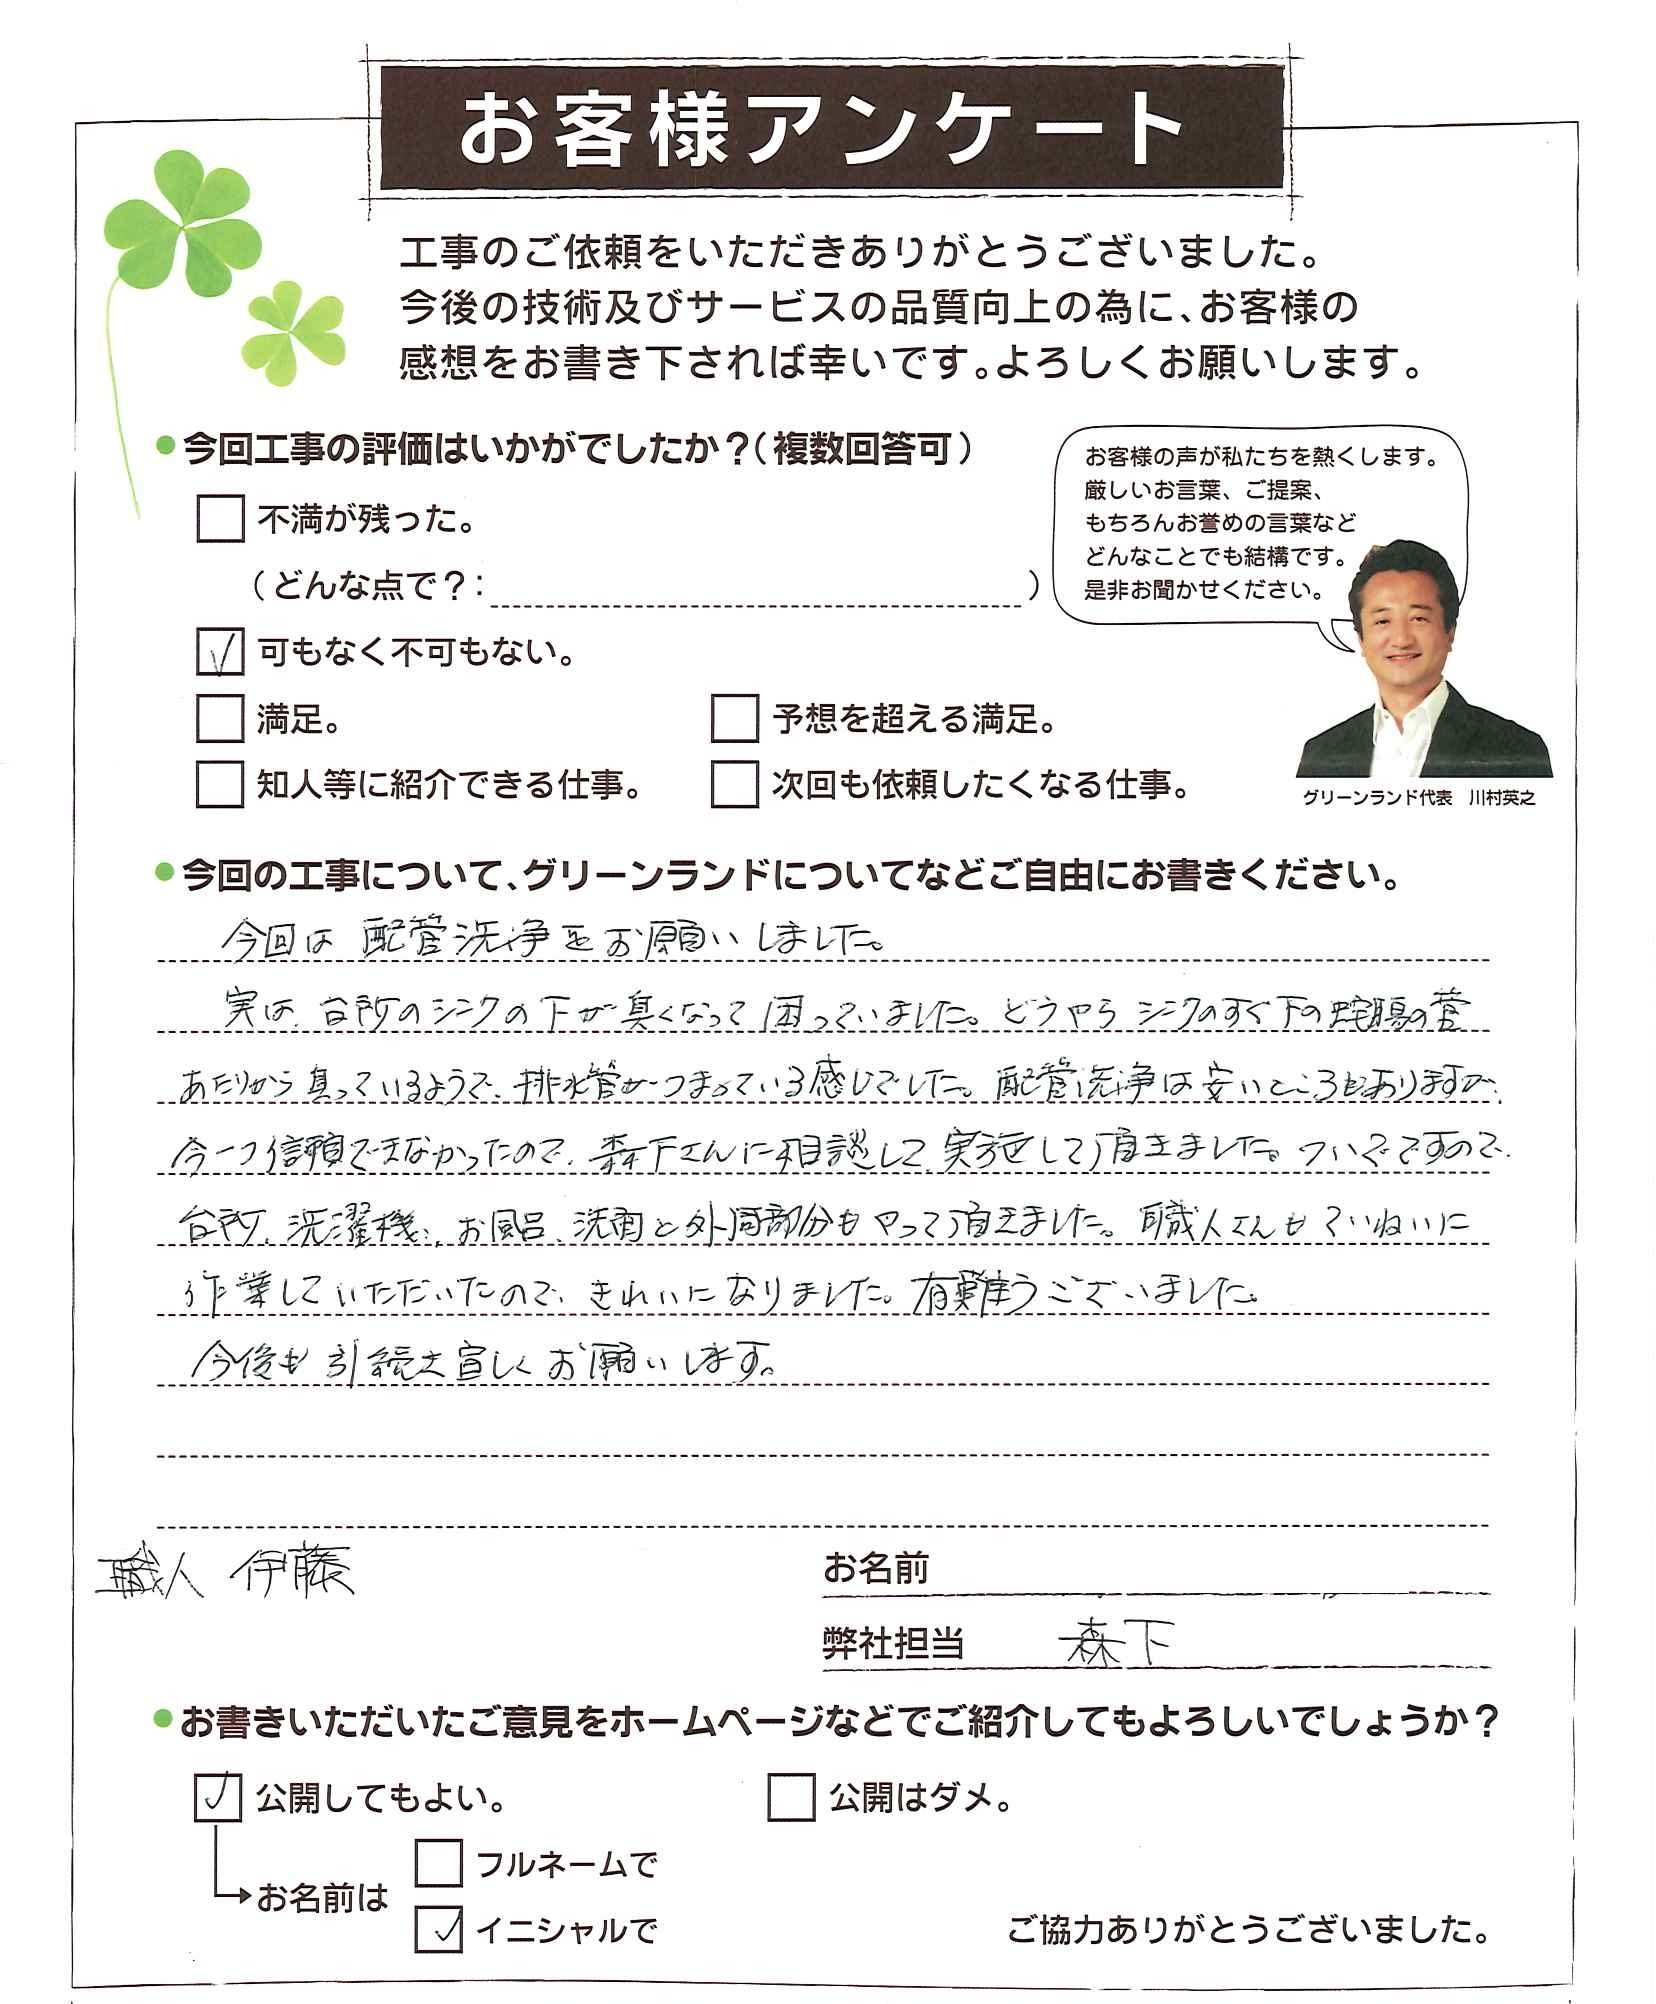 お客様アンケート
工事のご依頼をいただきありがとうございました。
今後の技術及びサービスの品質向上の為に、お客様の
感想をお書き下されば幸いです。よろしくお願いします。
●今回工事の評価はいかがでしたか？（複数回答可）
不満が残った。
（どんな点で？：　）
可もなく不可もない。
満足。
予想を超える満足。
知人等に紹介できる仕事。
次回も依頼したくなる仕事。
お客様の声が私たちを熱くします。
厳しいお言葉、ご提案、
もちろんお誉めの言葉など
どんなことでも結構です。
是非お聞かせください。
グリーンランド代表　川村英之
●今回の工事について、グリーンランドについてなどご自由にお書きください。
今回は配管洗浄をお願いしました。
実は、台所のシンクの下が臭くなって困っていました。どうやらシンクのすぐ下の蛇腸の管
あたりから臭っているようで、排水管がつまっている感じでした。配管洗浄は安いところもありますが、
今一つ信頼できなかったので、森下さんに相談して、実施して頂きました。ついでですので、
台所、洗濯機、お風呂、洗面と外周部分もやって頂きました。職人さんもていねいに
作業していただいたので、きれいになりました。有難うございました。
今後も引続き宜しくお願いします。
職人 伊藤
お名前
弊社担当　森下
●お書きいただいたご意見をホームページなどでご紹介してもよろしいでしょうか？
公開してもよい。
公開はダメ。
お名前は
フルネームで
イニシャルで
ご協力ありがとうございました。